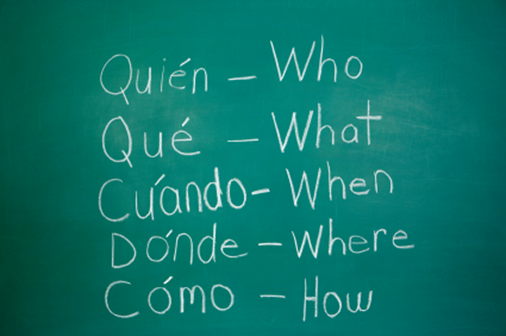 Quién – Who
Qué – What
Cuándo – When
Dónde – Where
Cómo – How